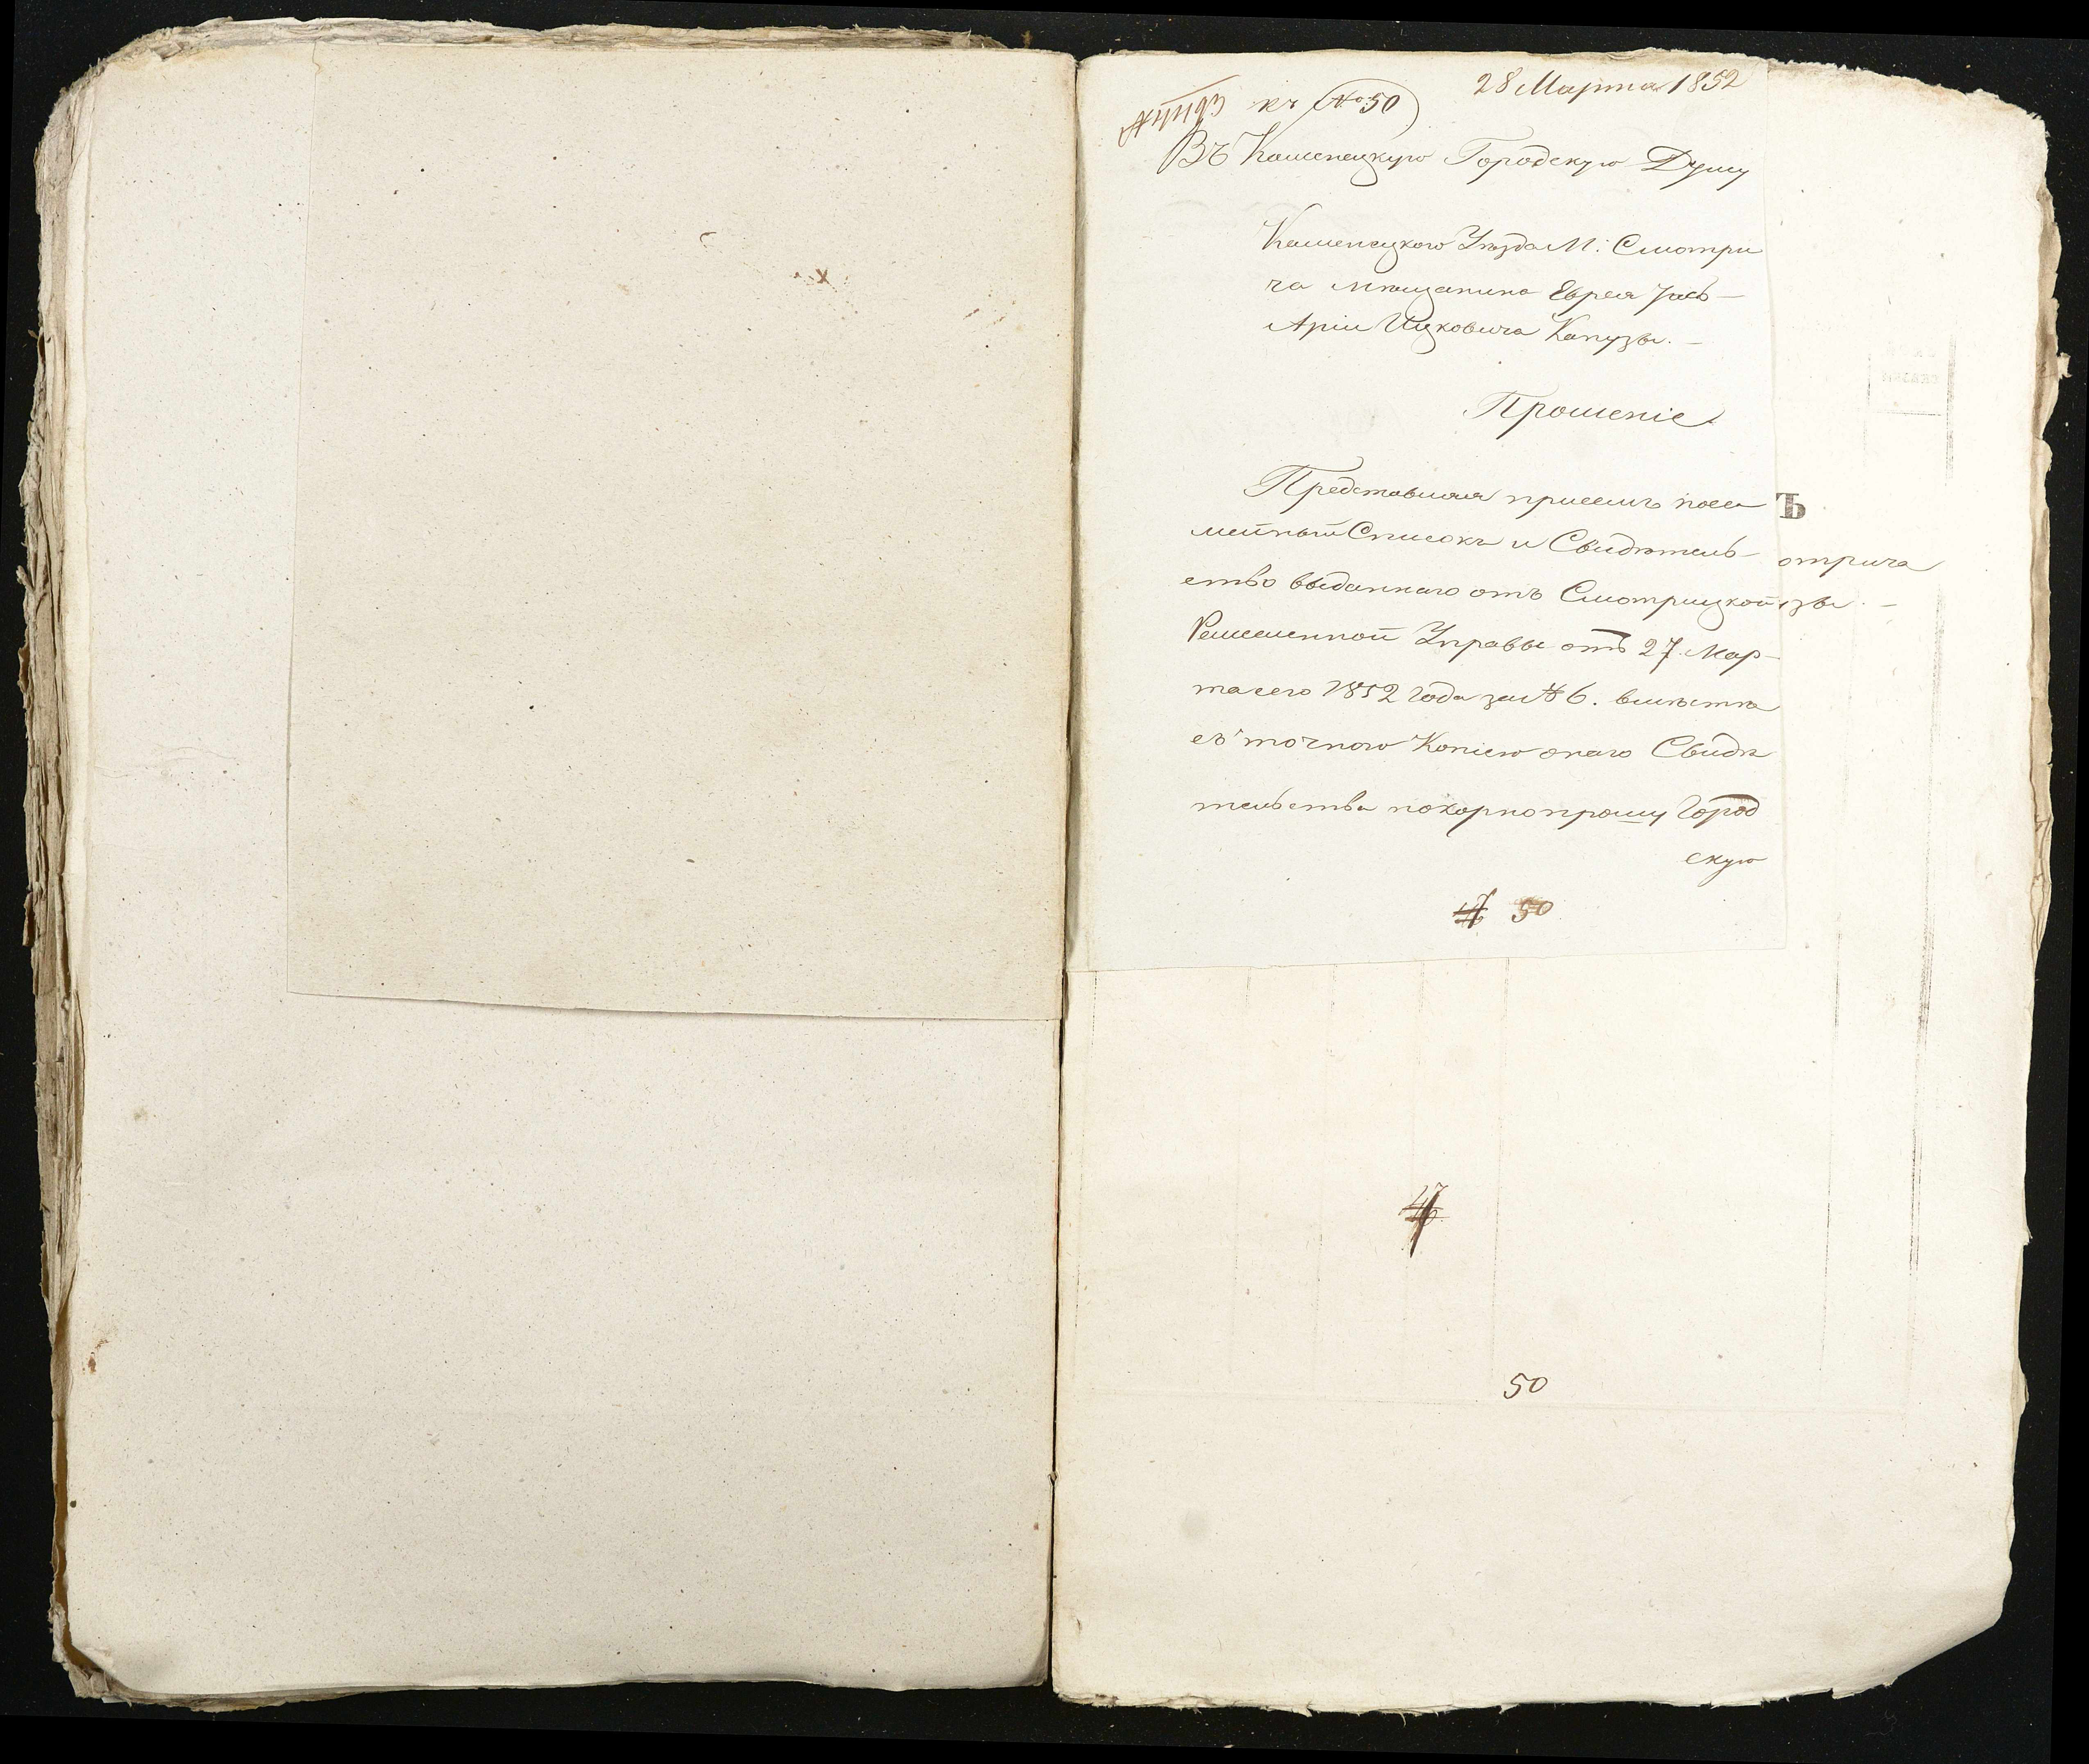 къ № 50
28 Марта 1852
Въ Каменецкую Городскую Думу
Каменецкого Уѣзда М: Смотри
ча мѣщанина Еврея
Аріи Ицковича Капузы. —
Прошеніе
Представляя присемъ посе
мейный Списокъ и Свидѣтель-
ство выданнаго отъ Смотрицкой
Ремесленной Управы отъ 27 Мар-
та сего 1852 года за № 6. вмѣстѣ
съ точною Копіею онаго Свидѣ
тельства покорно прошу Город
скую
50
Ъ
отрича
зы. —
47
50